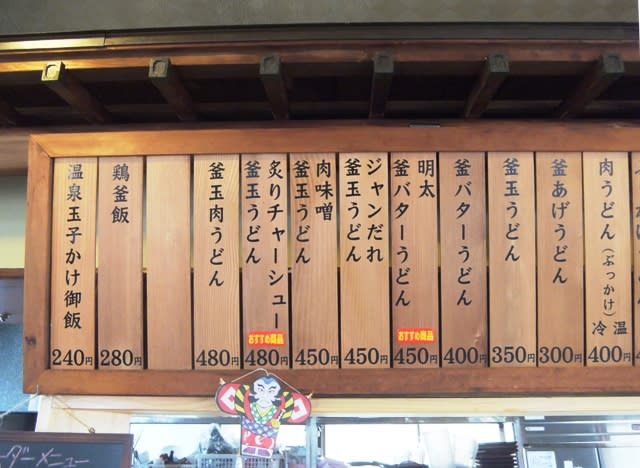 肉うどん（ぶっかけ）
冷 温
400円
釜あげうどん
300円
釜玉うどん
350円
釜バターうどん
400円
明太
釜バターうどん
おすすめ商品
450円
ジャンだれ
釜玉うどん
450円
肉味噌
釜玉うどん
450円
炙りチャーシュー
釜玉うどん
おすすめ商品
480円
釜玉肉うどん
480円
鶏釜飯
280円
温泉玉子かけ御飯
240円
ダーメニュー